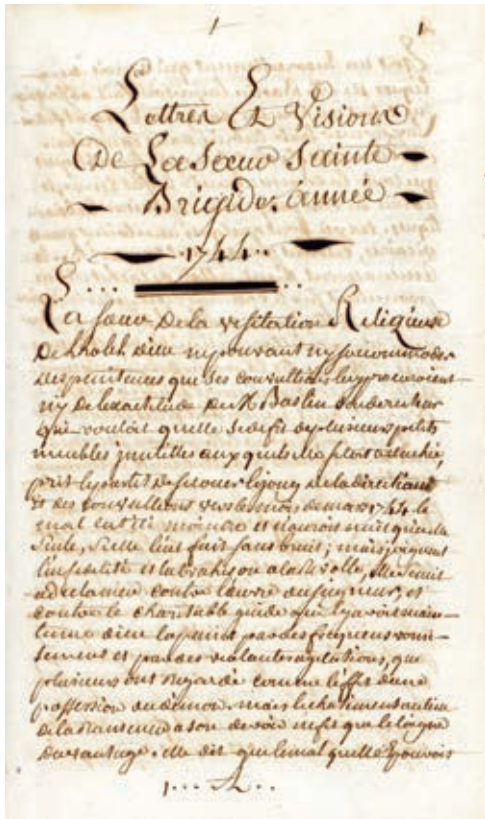 1 1
Lettres Et Visions
De La Sœur Sainte
Brigide. année
1744..
La sœur De la visitation Religieuse
De lhotel dieu ne pouvant ny saccommoder
Des penitences que ses convultions luy procuroient
ny De lexactitude De Mr son directeur
qui vouloit quelle se defit de plusieurs petits
meubles inutilles aux quels elle etoit attachée,
prit le parti de secouer le joug de la direction
et des convultions vers le mois de mars 1744. le
mal eut été moindre et nauroit nuit qua elle
seule, si elle leut fait sans bruit; mais joignant
linfidelité et la trahison a la revolte, elle se mit
a declamer contre lœuvre du seigneur, et
contre le charitable guide qui ly avoit main-
tenue dieu la punit par des frequens vomis-
semens et par des violentes agitations, que
plusieurs ont regardé comme leffet dune
possession du demon. mais le chatiment au lieu
de la ramener a son devoir ne fit que
davantage. elle dit que le mal quelle Eprouvoit